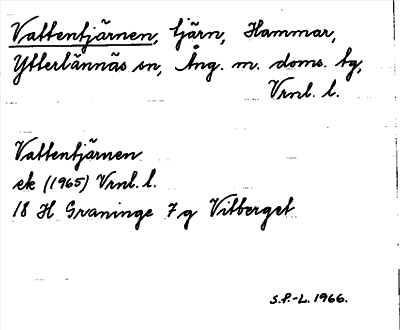 Vattentjärnen, tjärn, Hammar,
Ytterlännäs sn, Ång. m. doms. tg,
Vrnl. l.
Vattentjärnen
ek (1965) Vrnl. l.
18 H Graninge 7 g Vitberget
S.P.-L. 1966.